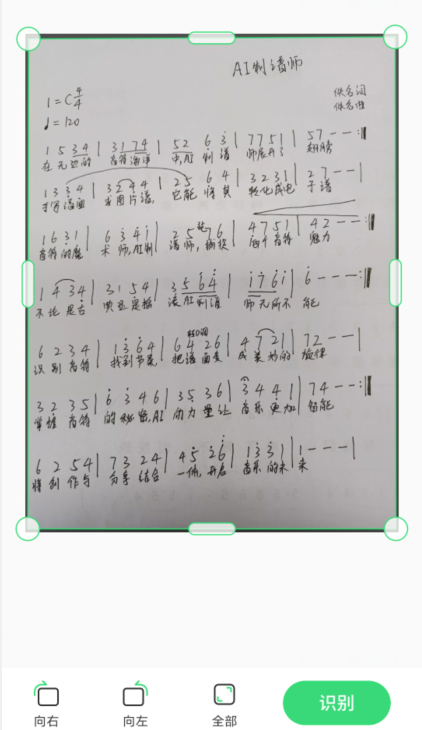 AI制谱师
1=C 4/4
佚名词
♩=120
佚名曲
1 5 3 4 | 3 1 7 4 | 5 2 6 3 | 7 7 5 1 | 5 7 - - :||
在无边的 音符海洋 中,AI制谱 师展开了 翅膀
1 3 3 4 | 3 2 4 4 | 2 5 6 4 | 3 2 3 1 | 2 7 - - |
手写谱面 或图片谱, 它能将其 转化成电 子谱
1 6 3 1 | 6 3 4 1 | 2 5 7 6 | 4 7 5 1 | 4 2 - - |
音符的魔 术师,AI制 谱师, 音符 魅力
1 4 3 4 | 3 1 5 4 | 3 5 6 4 | 1 7 6 1 | 6 - - - |
不论是 AI制谱 师无所不 能
6 2 3 4 | 1 3 6 4 | 6 4 2 6 | 4 7 2 1 | 7 2 - - |
识别音符 找到节奏 把谱面变 成美妙的 旋律
3 2 3 5 | 6 3 4 6 | 3 5 3 6 | 3 4 4 1 | 7 4 - - :||
掌握音符 的秘密,AI 的力量让 音乐更加 智能
6 2 5 4 | 7 3 2 4 | 4 5 2 6 | 1 3 3 1 | 1 - - - |
将创作与 分享结合 一体,开启 音乐的未 来
向右
向左
全部
识别